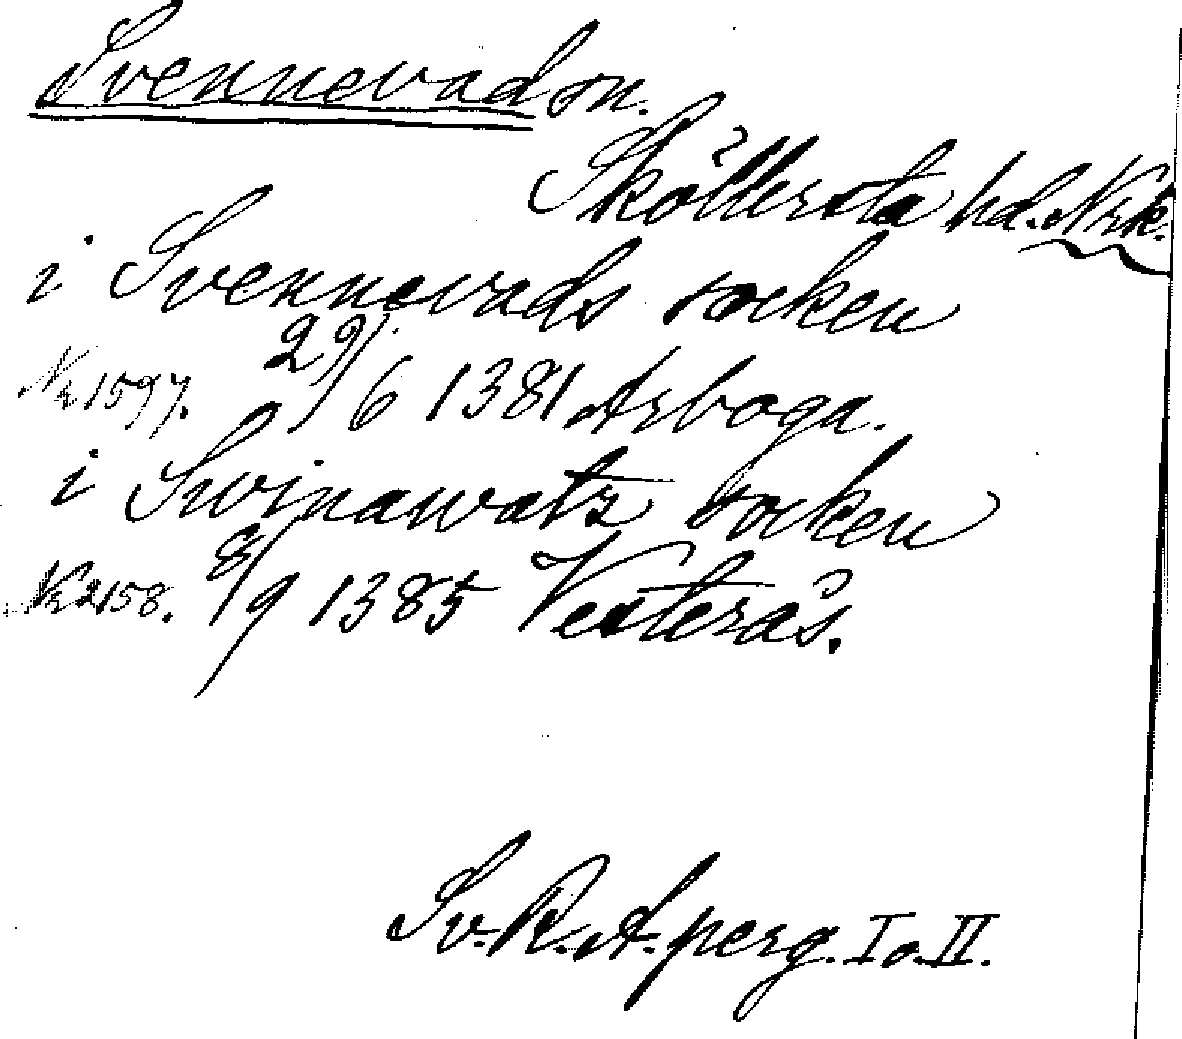 Svennevad sn.
Sköllersta hd. Nrk.
i Svennevads socken
Nr 1597. 29/6 1381 Arboga.
i Swinawatz socken
Nr 2158. 8/9 1385 Vesterås.
Sv. R. A. perg. I o. II.